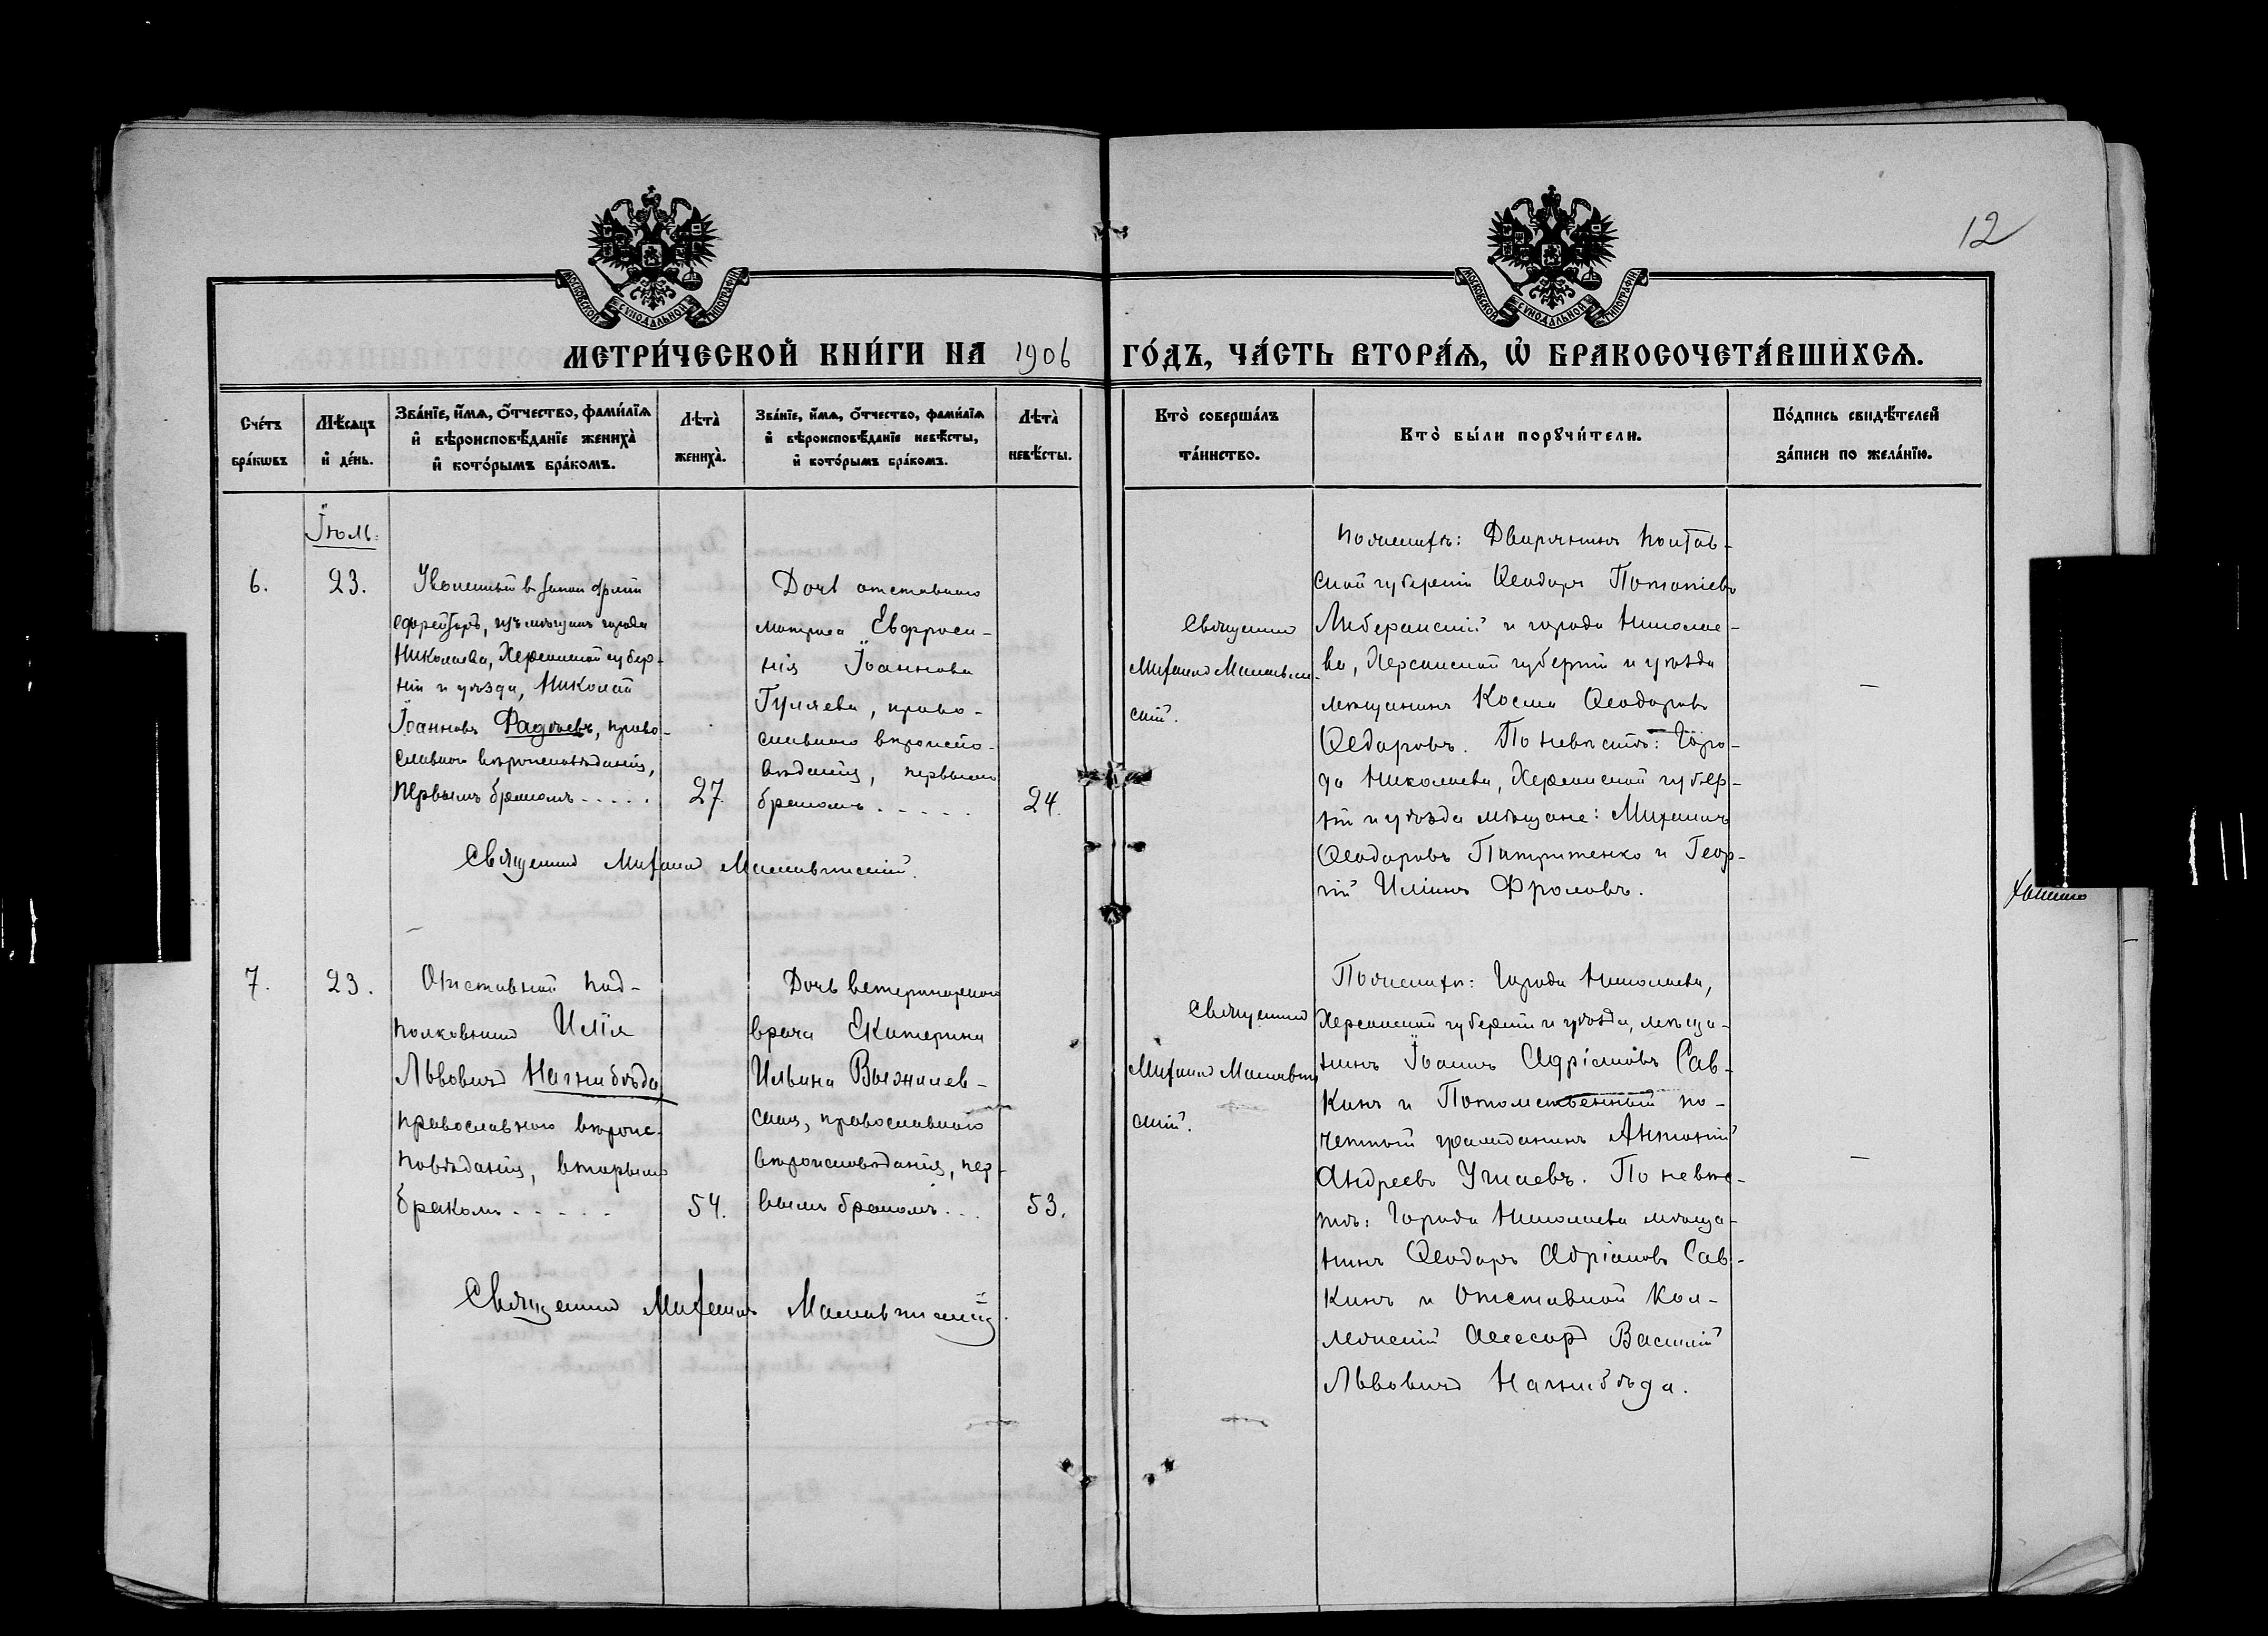 12
МОСКОВСКОЙ СѴНОДАЛЬНОЙ ТИПОГРАФІИ
МОСКОВСКОЙ СѴНОДАЛЬНОЙ ТИПОГРАФІИ
МЕТРИ́ЧЕСКОЙ КНИ́ГИ НА 1906 ГО́ДЪ, ЧА́СТЬ ВТОРА́Ѧ, Ѽ БРАКОСОЧЕТА́ВШИХСѦ.
Сче́тъ
бра́кѡвъ
Мѣ́сѧцъ
и҆ де́нь.
Зва́нїе, и҆́мѧ, Ѻ҆́тчество, фами́лїѧ
и҆ вѣроисповѣ́данїе жениха̀
и҆ кото́рымъ бра́комъ.
Лѣта̀
жениха̀.
Зва́нїе, и҆́мѧ, Ѻ҆́тчество, фами́лїѧ
и҆ вѣроисповѣ́данїе невѣ́сты,
и҆ кото́рымъ бра́комъ.
Лѣта̀
невѣ́сты.
Кто̀ соверша́лъ
та́инство.
Кто̀ бы́ли порꙋчи́тели.
По́дпись свидѣ́телей
за́писи по жела́нїю.
Іюль:
6.
23.
Уволенный в запас арміи
ефрейторъ, изъ мѣщанъ города
Николаева, Херсонской губер-
ніи и уѣзда, Николай
Іоанновъ Фадѣевъ, право-
славнаго вѣроисповѣданія,
первымъ бракомъ . . . . .
27.
Дочь отставного
матроса Евфроси-
нія Іоаннова
Гуляева, право-
славнаго вѣроиспо-
вѣданія, первымъ
бракомъ . . . . .
24.
Священникъ Михаилъ
Священникъ
Михаилъ
скій.
По женихѣ: Дворянинъ Полтав-
ской губерніи Ѳеодоръ Потапіевъ
Либеранскій и города Николае-
ва, Херсонской губерніи и уѣзда
мѣщанинъ Косма Ѳеодоровъ
Ѳедоровъ. По невѣстѣ: Горо-
да Николаева, Херсонской губер-
ніи и уѣзда мѣщане: Михаилъ
Ѳеодоровъ и Геор-
гій Иліинъ Фроловъ.
—
7.
23.
Отставной под-
полковникъ Илія
Львовичъ Нагнибѣда
православнаго вѣроис-
повѣданія, вторымъ
бракомъ . . . . .
54.
Дочь ветеринарнаго
врача Екатерина
Ильина
ская, православнаго
вѣроисповѣданія, пер-
вымъ бракомъ . . .
53.
Священникъ Михаилъ
Священникъ
Михаилъ
скій.
По женихѣ: Города Николаева,
Херсонской губерніи и уѣзда, мѣща-
нинъ Іоаннъ Адріановъ Сав-
кинъ и Потомственный по-
четный гражданинъ Антоній
Андреевъ. По невѣс-
тѣ: Города Николаева мѣща-
нинъ Ѳеодоръ Адріановъ Сав-
кинъ и Отставной Кол-
лежскій Асессоръ Василій
Львовичъ Нагнибѣда.
—